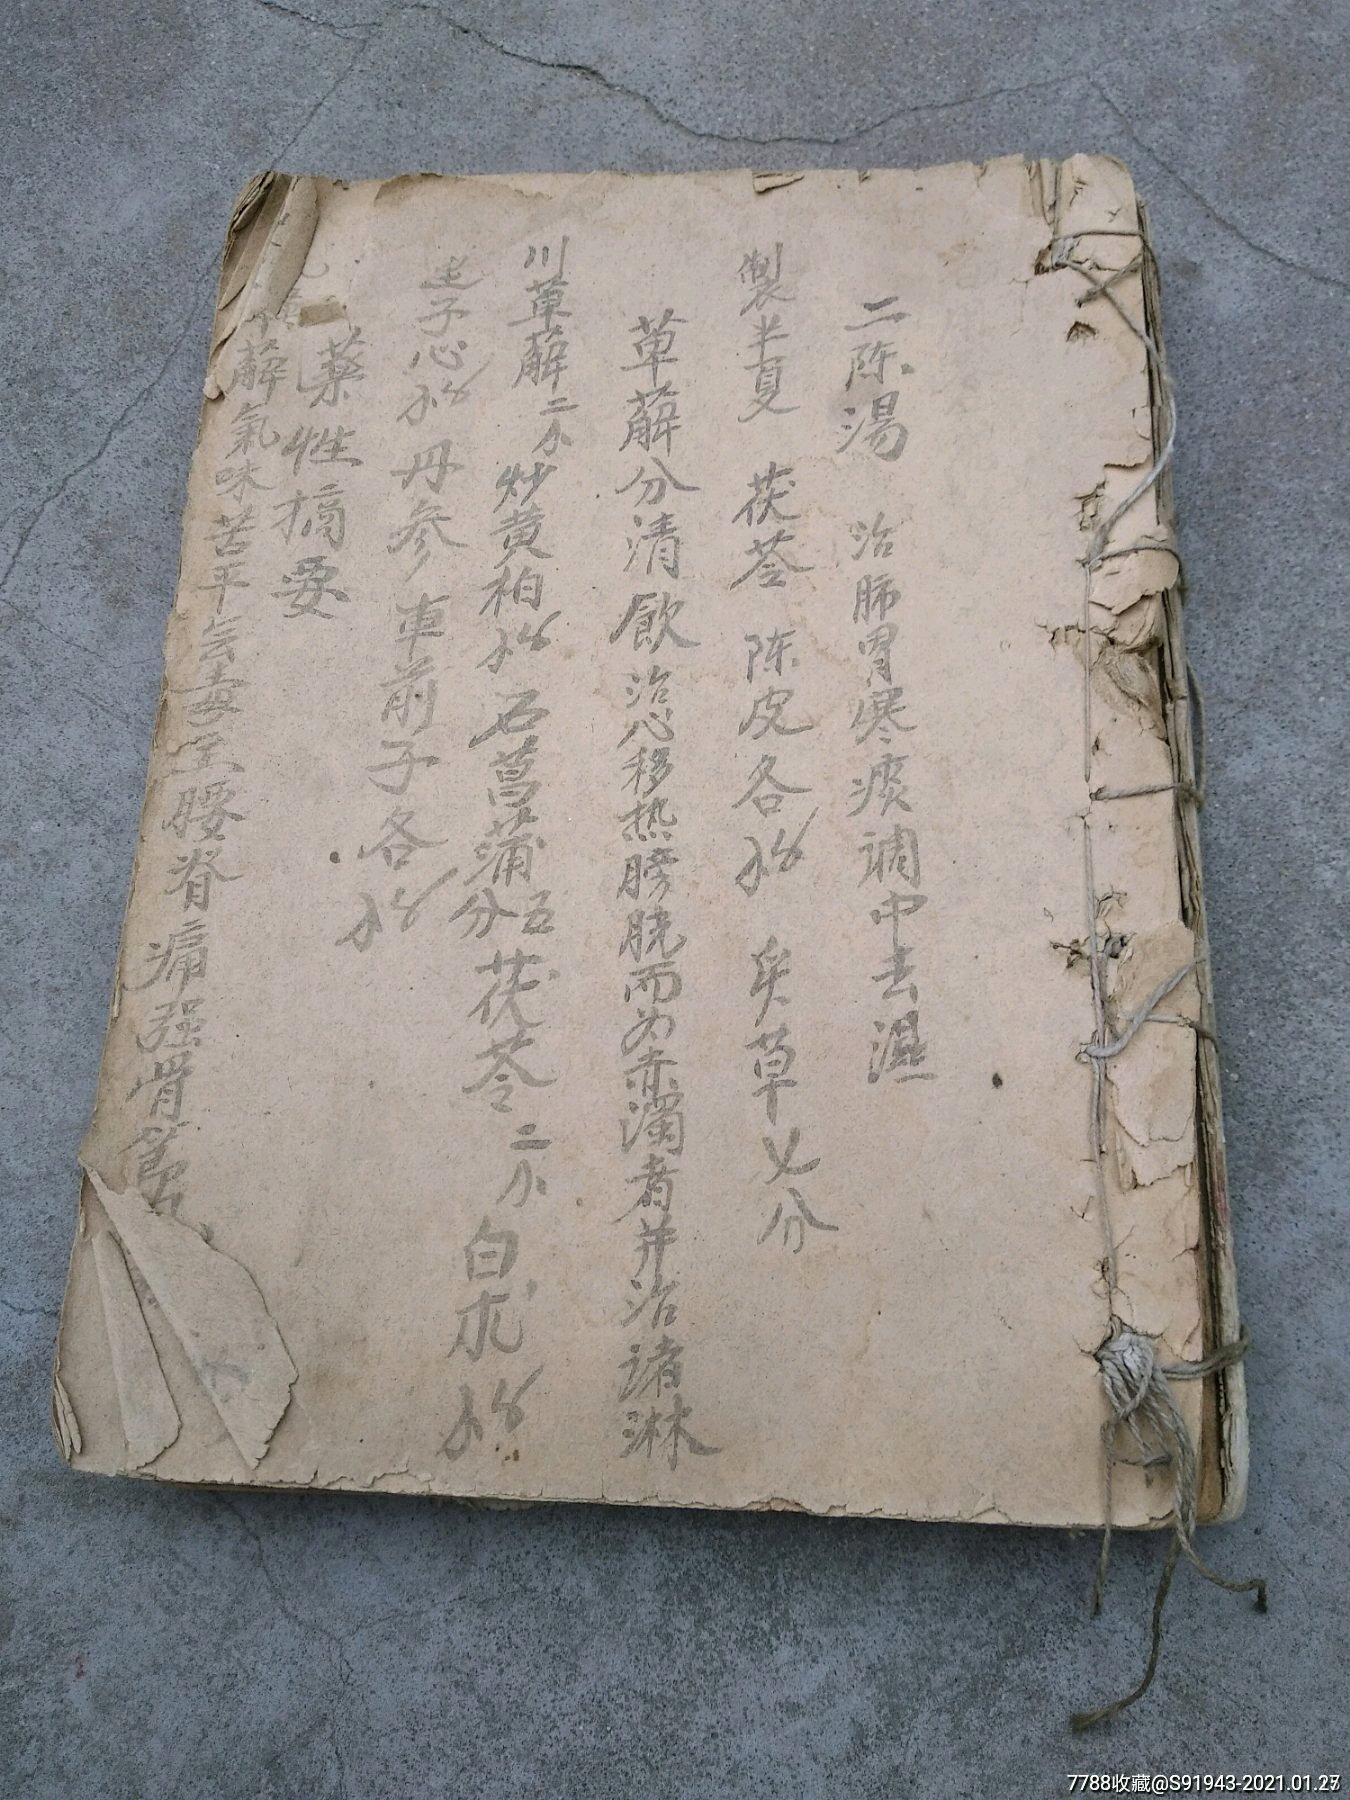 二陈湯 治肺胃寒痰調中去濕
製半夏 茯苓 陈皮各 草 分
萆薢分清飲 治心移热膀胱而为赤濁者并治诸淋
川萆薢二 炒黄柏 石菖蒲五分 茯苓二 白朮
子心 丹参 車前子各
藥性摘要
薢氣味苦平 毒主腰脊痛强骨
7788收藏@S91943-2021.01.27